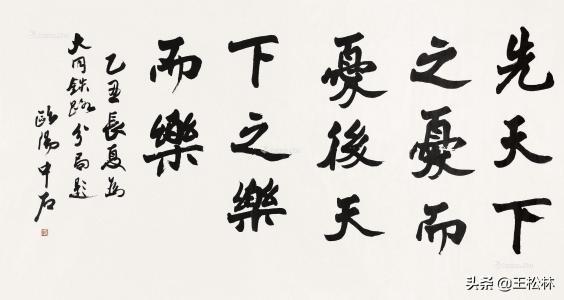 先天下
之憂而
憂後天
下之樂
而樂
乙丑長夏為
大同鉄路分局题
歐陽中石
头条 @王松林